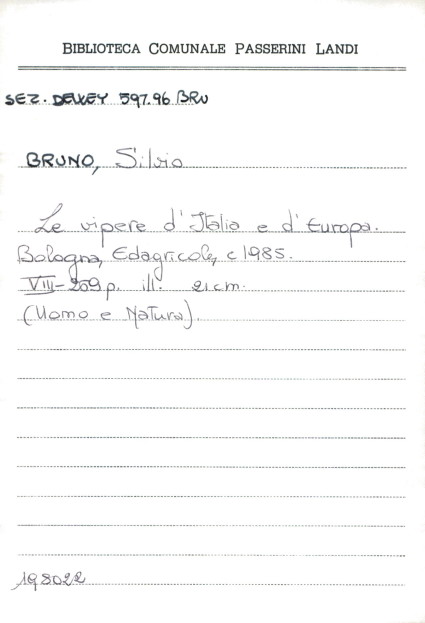 BIBLIOTECA COMUNALE PASSERINI LANDI
SEZ. DEWEY 597.96 BRU
BRUNO, Silvio
Le vipere d'Italia e d'Europa.
Bologna, Edagricole, c1985.
VIII-209 p. ill. 21cm.
(Uomo e Natura).
198022